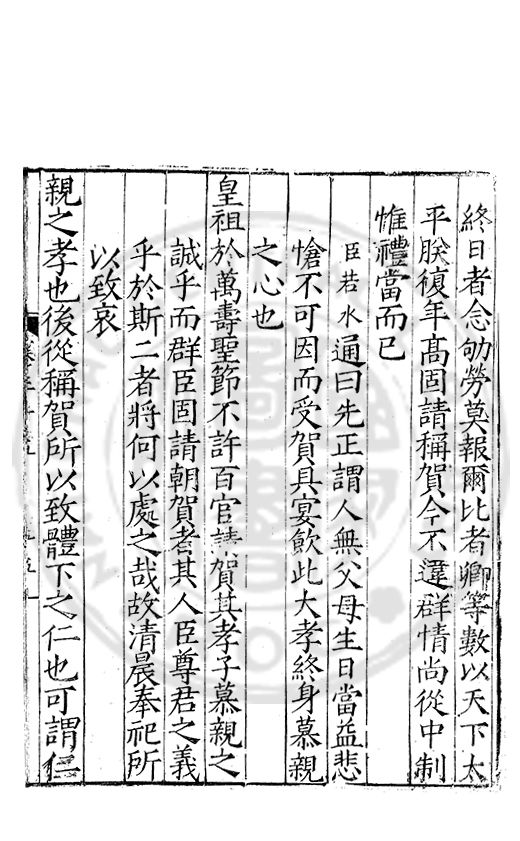 終日者念劬勞莫報爾比者卿等數以天下太
平朕復年高固請稱賀今不違群情尚從中制
惟禮當而已
臣若水通曰先正謂人無父母生日當益悲
愴不可因而受賀具宴飲此大孝終身慕親
之心也
皇祖於萬壽聖節不許百官請賀其孝子慕親之
誠乎而群臣固請朝賀者其人臣尊君之義
乎於斯二者將何以處之哉故清晨奉祀所
以致哀
親之孝也後從稱賀所以致體下之仁也可謂仁